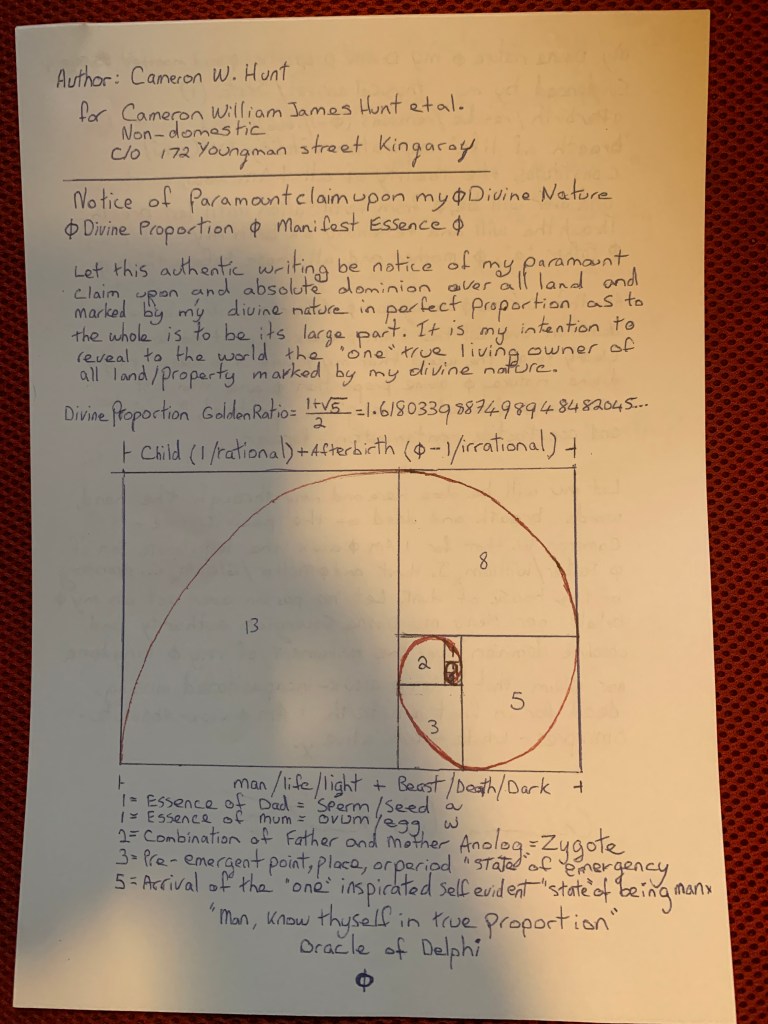 Author: Cameron W. Hunt
for Cameron William James Hunt et al.
Non-domestic
C/o 172 Youngman street Kingaroy
Notice of Paramount claim upon my ϕ Divine Nature
ϕ Divine Proportion ϕ Manifest Essence ϕ
Let this authentic writing be notice of my paramount
claim upon and absolute dominion over all land and
marked by my divine nature in perfect proportion as to
the whole is to be its large part. It is my intention to
reveal to the world the "one" true living owner of
all land/property marked by my divine nature.
Divine Proportion Golden Ratio = (1+√5)/2 = 1.61803398874989484820 45...
⊢ Child (1/rational) + Afterbirth (ϕ-1/irrational) ⊣
13
8
2
1
3
5
man/life/light + Beast/Death/Dark
1 = Essence of Dad = Sperm/Seed a
1 = Essence of mum = ovum/egg w
2 = Combination of Father and Mother Analog = Zygote
3 = Pre-emergent point, place, or period "state" of emergency
5 = Arrival of the "one" inspirated self evident "state" of being man
"Man, know thyself in true proportion"
Oracle of Delphi
ϕ